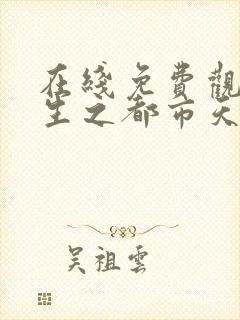 在綫免費觀
生之都市天
吴祖雲